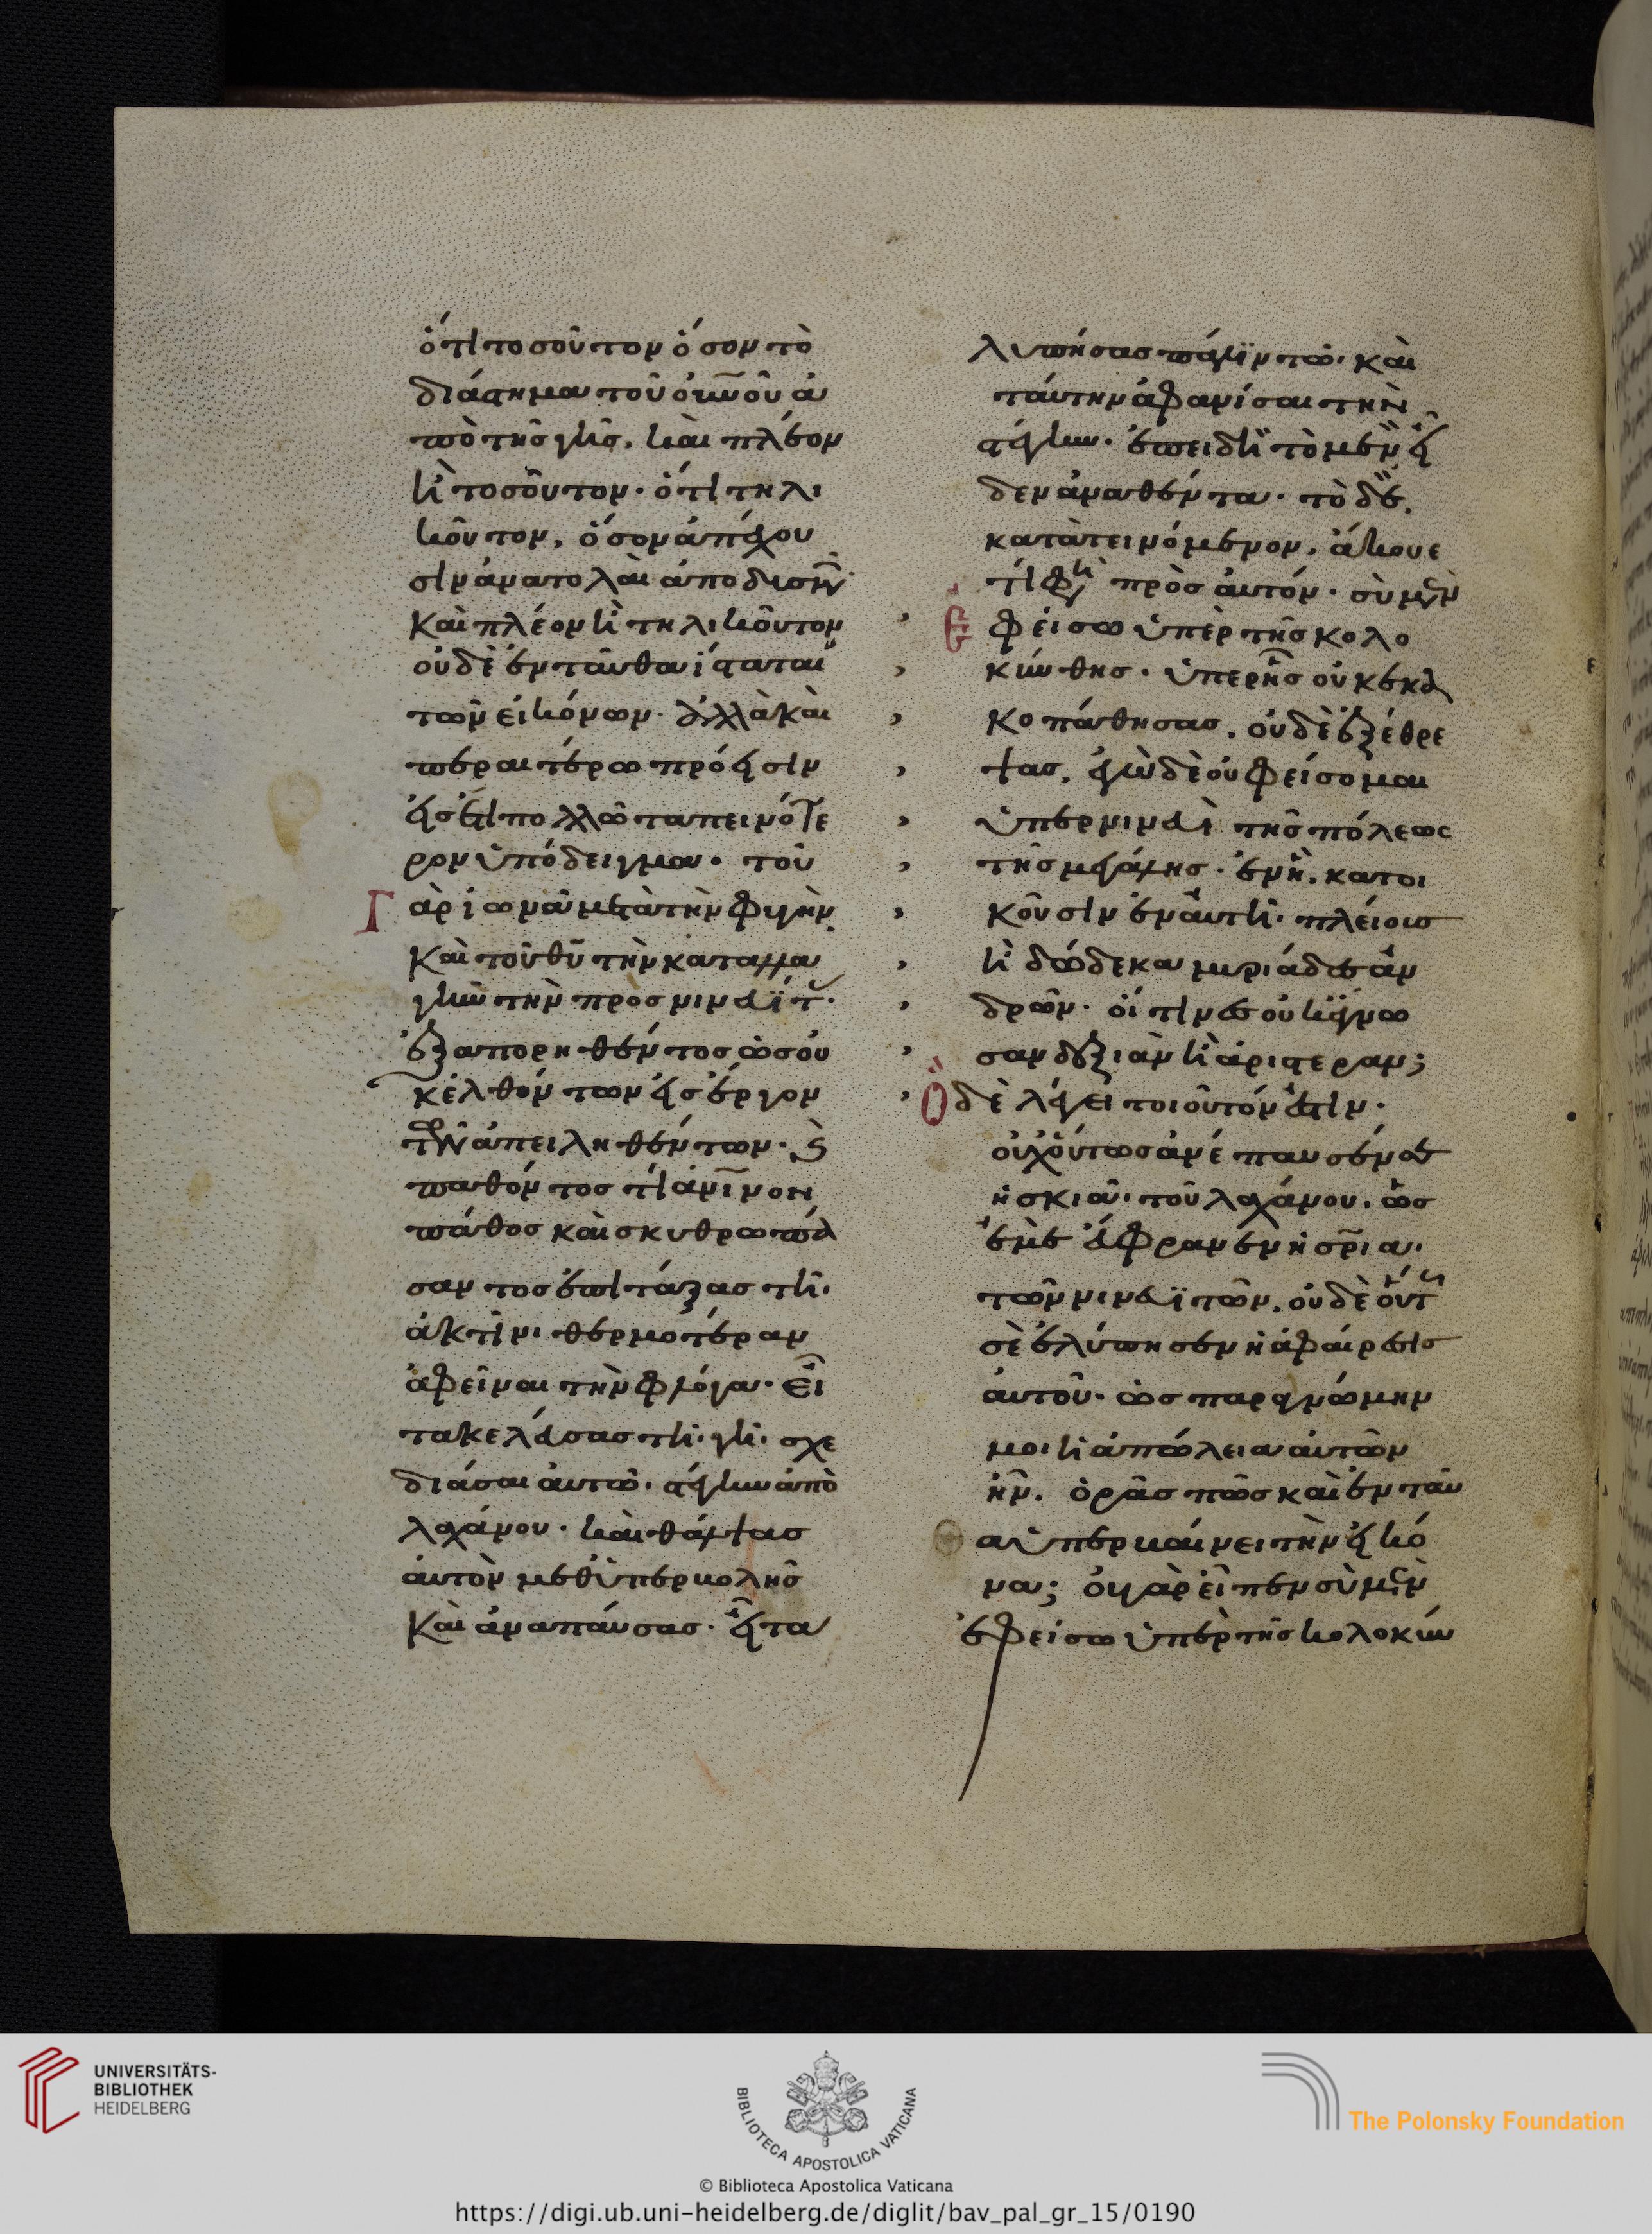 ὅτι τοσοῦτον ὅσον τὸ
διάστημα τοῦ οὐνοῦ ἀ
πὸ τῆς γῆς. καὶ πλέον
ἢ τοσοῦτον. ὅτι τηλι
κοῦτον, ὅσον ἀπέχου
σιν ἀνατολαὶ ἀπο δυσμῶν.
Καὶ πλέον ἢ τηλικοῦτον
οὐδὲ ἐνταῦθα ἵσταται
τῶν εἰκόνων. ἀλλὰ καὶ
περαιτέρω πρόεισιν
εἰς ἔτι πολλῶ ταπεινότε
ρον ὑπόδειγμα. τοῦ
Γὰρ ἰωνᾶ μετὰ τὴν φυγὴν
Καὶ τοῦ θυ τὴν καταλλα
γὴν τὴν προς νινευΐτ.
ἐξαπορηθέντος ὡς οὐ
κ ἐλθόντων εἰς ἔργον
τῶν ἀπειληθέντων. καὶ
παθόντος τὶ ἀνινον
πάθος καὶ σκυθρωπά
σαντος ἐπιτάξας τῆ
ἀκτῖνι θερμοτέραν
ἀφεῖναι τὴν φλόγα. εἶ
τα κελεύσας τῆ γῆ σχε
διάσαι αὐτῶ. στέγην ἀπὸ
λαχάνου. καὶ θάλψας
αὐτὸν μεθ ὑπερβολῆς
Καὶ ἀναπαύσας. εἶτα
λυπήσας πάλϊν τῶ. καὶ
ταύτην ἀφανίσαι τὴν
στέγην. ἐπειδὴ τὸ μὲν εἶ
δεν ἀναθέντα. τὸ δὲ,
κατὰτεινόμενον. ἄκουε
τί φη πρὸς αὐτόν. σὺ μὲν
Ἐφείσω ὑπὲρ τῆς κολο
κύνθης. ὑπερ ἧς οὐκ ἐκα
κοπάθησας. οὐδὲ ἐξέθρε
ψας, ἐγὼ δὲ οὐ φείσομαι
ὑπερ νινευὶ τῆς πόλεως
τῆς μεγάλης. ἐν ἧ, κατοι
κοῦσιν ἐν αὐτῆ. πλείους
ἢ δώδεκα μυριάδες ἀν
δρῶν. οἵτινες οὐκ ἔγνω
σαν δεξιὰν ἢ ἀριστεραν;
Ὃ δὲ λέγει τοιοῦτόν ἐστιν.
οὐχ οὕτως ἀνέπαυσέν σε
ἡ σκιὰ. τοῦ λαχάνου. ὡς
ἐμὲ εὔφρανεν ἡ σρία.
τῶν νινευϊτῶν. οὐδὲ οὕτ
σὲ ἐλύπησεν ἡ ἀφαίρεσις
αὐτοῦ. ὡς παρα γνώμην
μοι ἡ ἀπώλεια αὐτῶν
ἦν. ὁρᾶς πῶς καὶ ἐνταῦ
α ὑπερβαίνει τὴν εἰκό
να; οὐ γὰρ εἶπεν σὺ μὲν
ἐφείσω ὑπὲρ τῆς κολοκύν
UNIVERSITÄTS-
BIBLIOTHEK
HEIDELBERG
BIBLIOTECA APOSTOLICA VATICANA
The Polonsky Foundation
© Biblioteca Apostolica Vaticana
https://digi.ub.uni-heidelberg.de/diglit/bav_pal_gr_15/0190